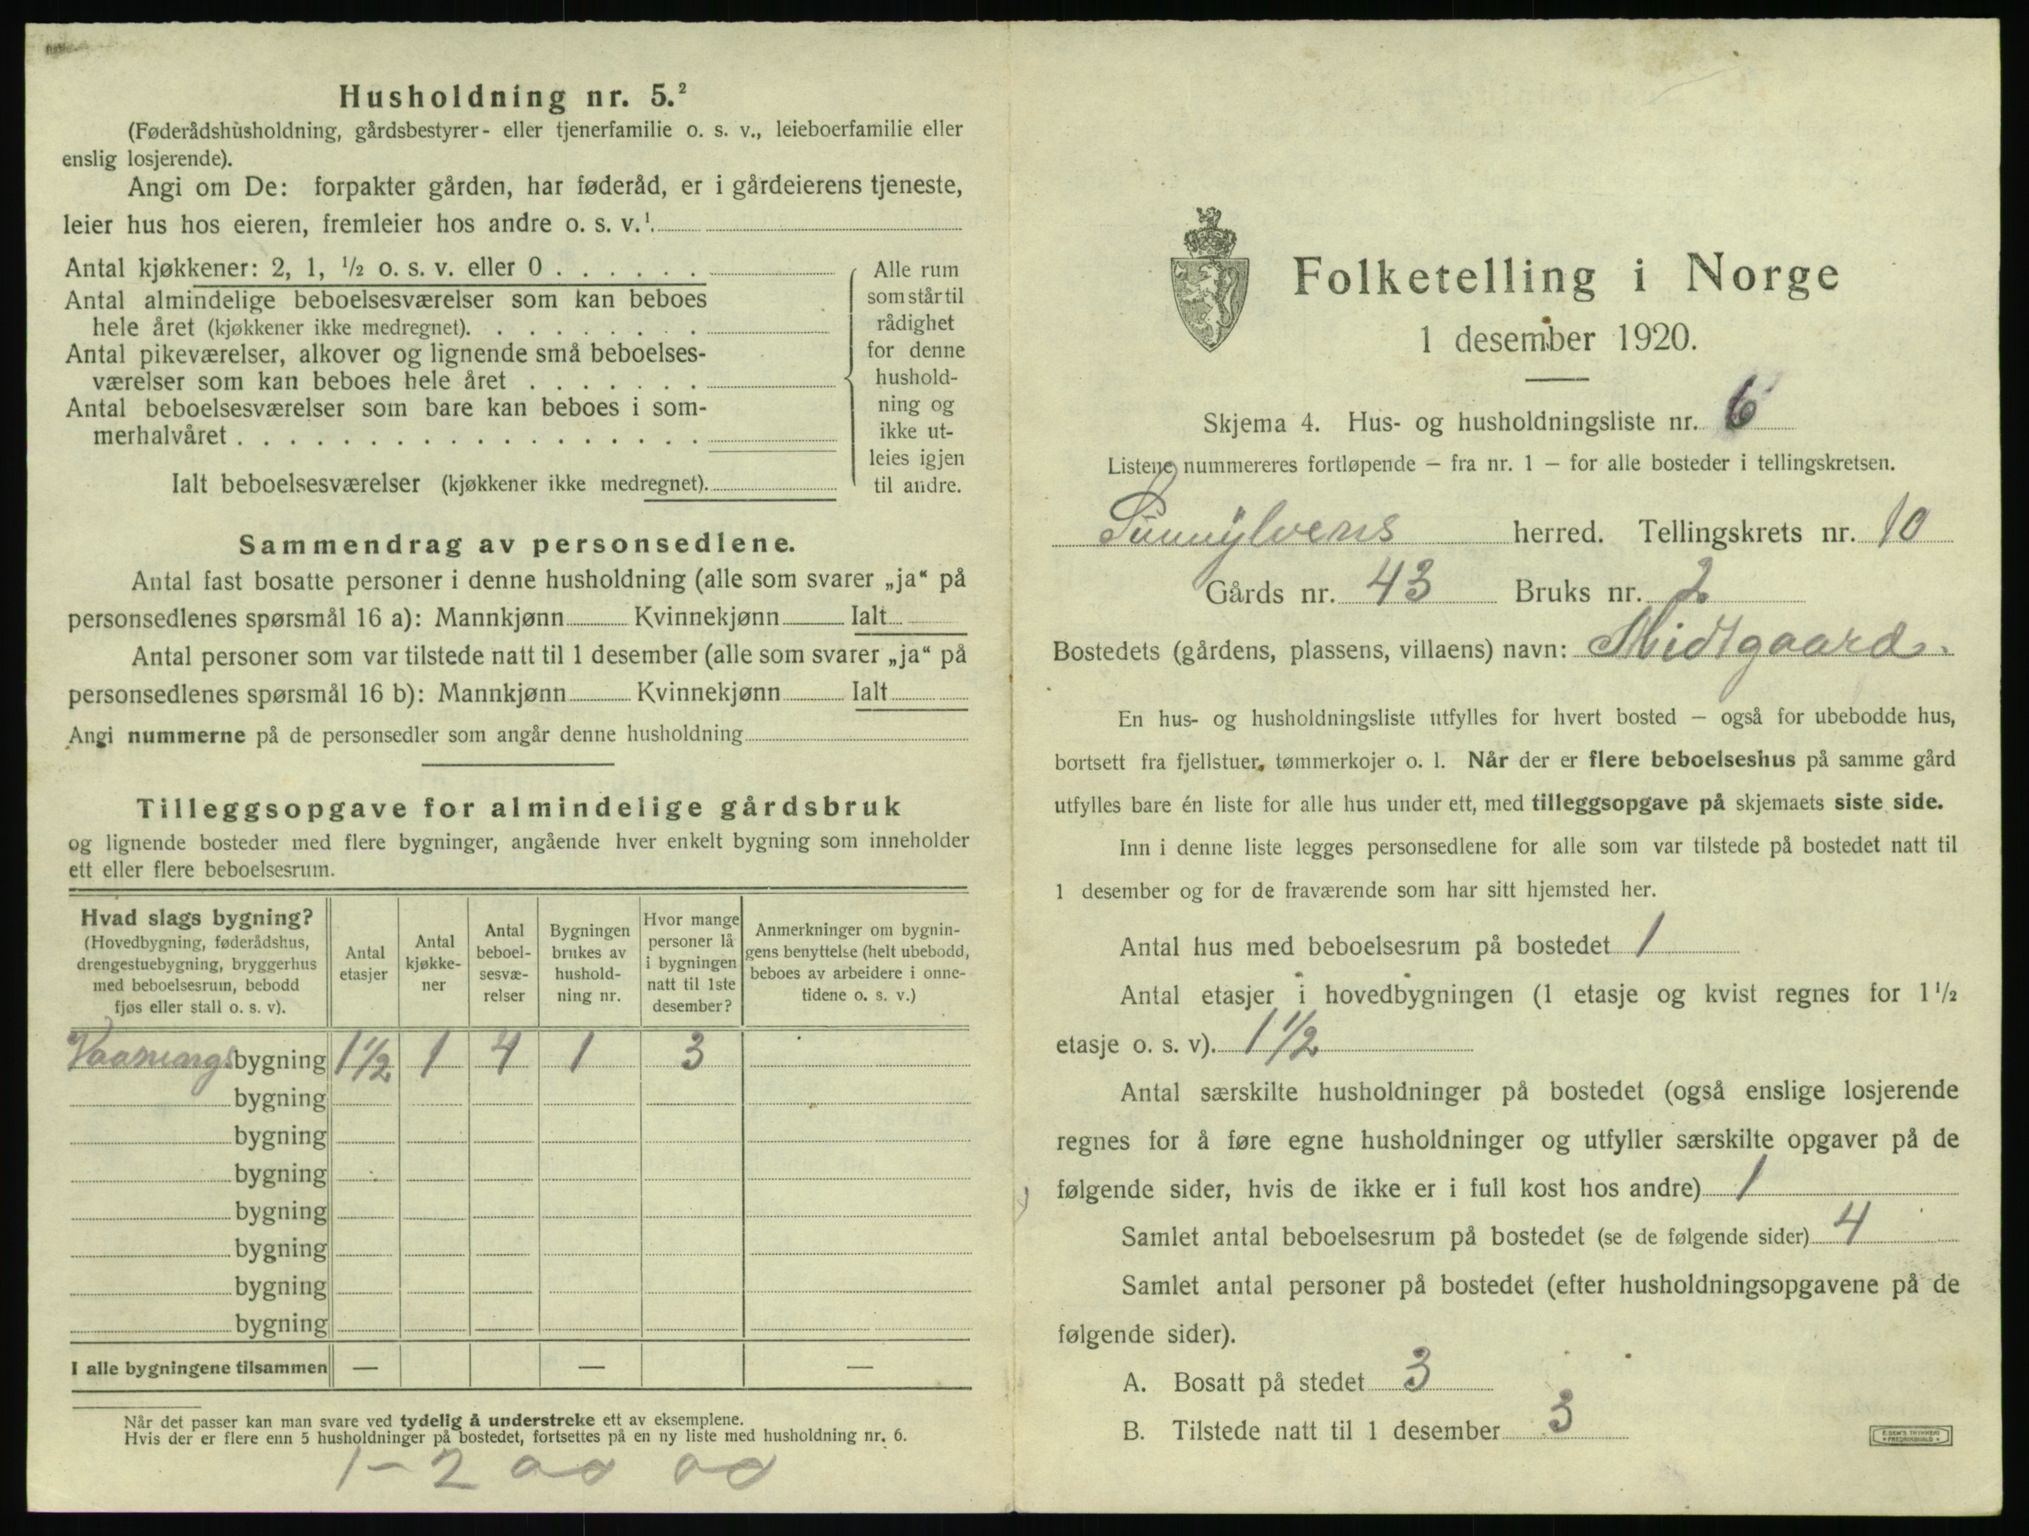 Husholdning nr. 5.²
(Føderådshusholdning, gårdsbestyrer- eller tjenerfamilie o. s. v., leieboerfamilie eller
enslig losjerende).
Angi om De: forpakter gården, har føderåd, er i gårdeierens tjeneste,
leier hus hos eieren, fremleier hos andre o. s. v.¹
Antal kjøkkener: 2, 1, ½ o. s. v. eller 0
Antal almindelige beboelsesværelser som kan beboes
hele året (kjøkkener ikke medregnet).
Antal pikeværelser, alkover og lignende små beboelses-
værelser som kan beboes hele året
Antal beboelsesværelser som bare kan beboes i som-
merhalvåret
Ialt beboelsesværelser (kjøkkener ikke medregnet).
Alle rum
som står til
rådighet
for denne
hushold-
ning og
ikke ut-
leies igjen
til andre.
Sammendrag av personsedlene.
Antal fast bosatte personer i denne husholdning (alle som svarer „ja“ på
personsedlenes spørsmål 16 a): Mannkjønn Kvinnekjønn Ialt
Antal personer som var tilstede natt til 1 desember (alle som svarer „ja“ på
personsedlenes spørsmål 16 b): Mannkjønn Kvinnekjønn Ialt
Angi nummerne på de personsedler som angår denne husholdning
Tilleggsopgave for almindelige gårdsbruk
og lignende bosteder med flere bygninger, angående hver enkelt bygning som inneholder
ett eller flere beboelsesrum.
Hvad slags bygning?
(Hovedbygning, føderådshus,
drengestuebygning, bryggerhus
med beboelsesrum, bebodd
fjøs eller stall o. s. v).
Antal
etasjer
Antal
kjøkke-
ner
Antal
beboel-
sesvæ-
relser
Bygningen
brukes av
hushold-
ning nr.
Hvor mange
personer lå
i bygningen
natt til 1ste
desember?
Anmerkninger om bygnin-
gens benyttelse (helt ubebodd,
beboes av arbeidere i onne-
tidene o. s. v.)
Vaanings bygning 1½ 1 4 1 3
bygning
bygning
bygning
bygning
bygning
bygning
bygning
I alle bygningene tilsammen — — —
Når det passer kan man svare ved tydelig å understreke ett av eksemplene.
Hvis der er flere enn 5 husholdninger på bostedet, fortsettes på en ny liste med husholdning nr. 6.
1 - 2
Folketelling i Norge
1 desember 1920.
Skjema 4. Hus- og husholdningsliste nr. 6
Listene nummereres fortløpende – fra nr. 1 – for alle bosteder i tellingskretsen.
Sunnylvens herred. Tellingskrets nr. 10
Gårds nr. 43 Bruks nr. 2
Bostedets (gårdens, plassens, villaens) navn: Midtgaard.
En hus- og husholdningsliste utfylles for hvert bosted – også for ubebodde hus,
bortsett fra fjellstuer, tømmerkojer o. l. Når der er flere beboelseshus på samme gård
utfylles bare én liste for alle hus under ett, med tilleggsopgave på skjemaets siste side.
Inn i denne liste legges personsedlene for alle som var tilstede på bostedet natt til
1 desember og for de fraværende som har sitt hjemsted her.
Antal hus med beboelsesrum på bostedet 1
Antal etasjer i hovedbygningen (1 etasje og kvist regnes for 1½
etasje o. s. v). 1½
Antal særskilte husholdninger på bostedet (også enslige losjerende
regnes for å føre egne husholdninger og utfyller særskilte opgaver på de
følgende sider, hvis de ikke er i full kost hos andre) 1
Samlet antal beboelsesrum på bostedet (se de følgende sider) 4
Samlet antal personer på bostedet (efter husholdningsopgavene på de
følgende sider).
A. Bosatt på stedet 3
B. Tilstede natt til 1 desember 3